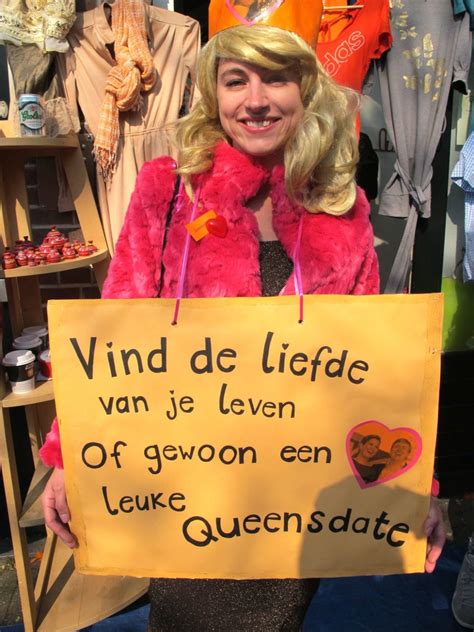 adidas
Grolsch
Vind de liefde
van je leven
Of gewoon een
leuke
Queensdate